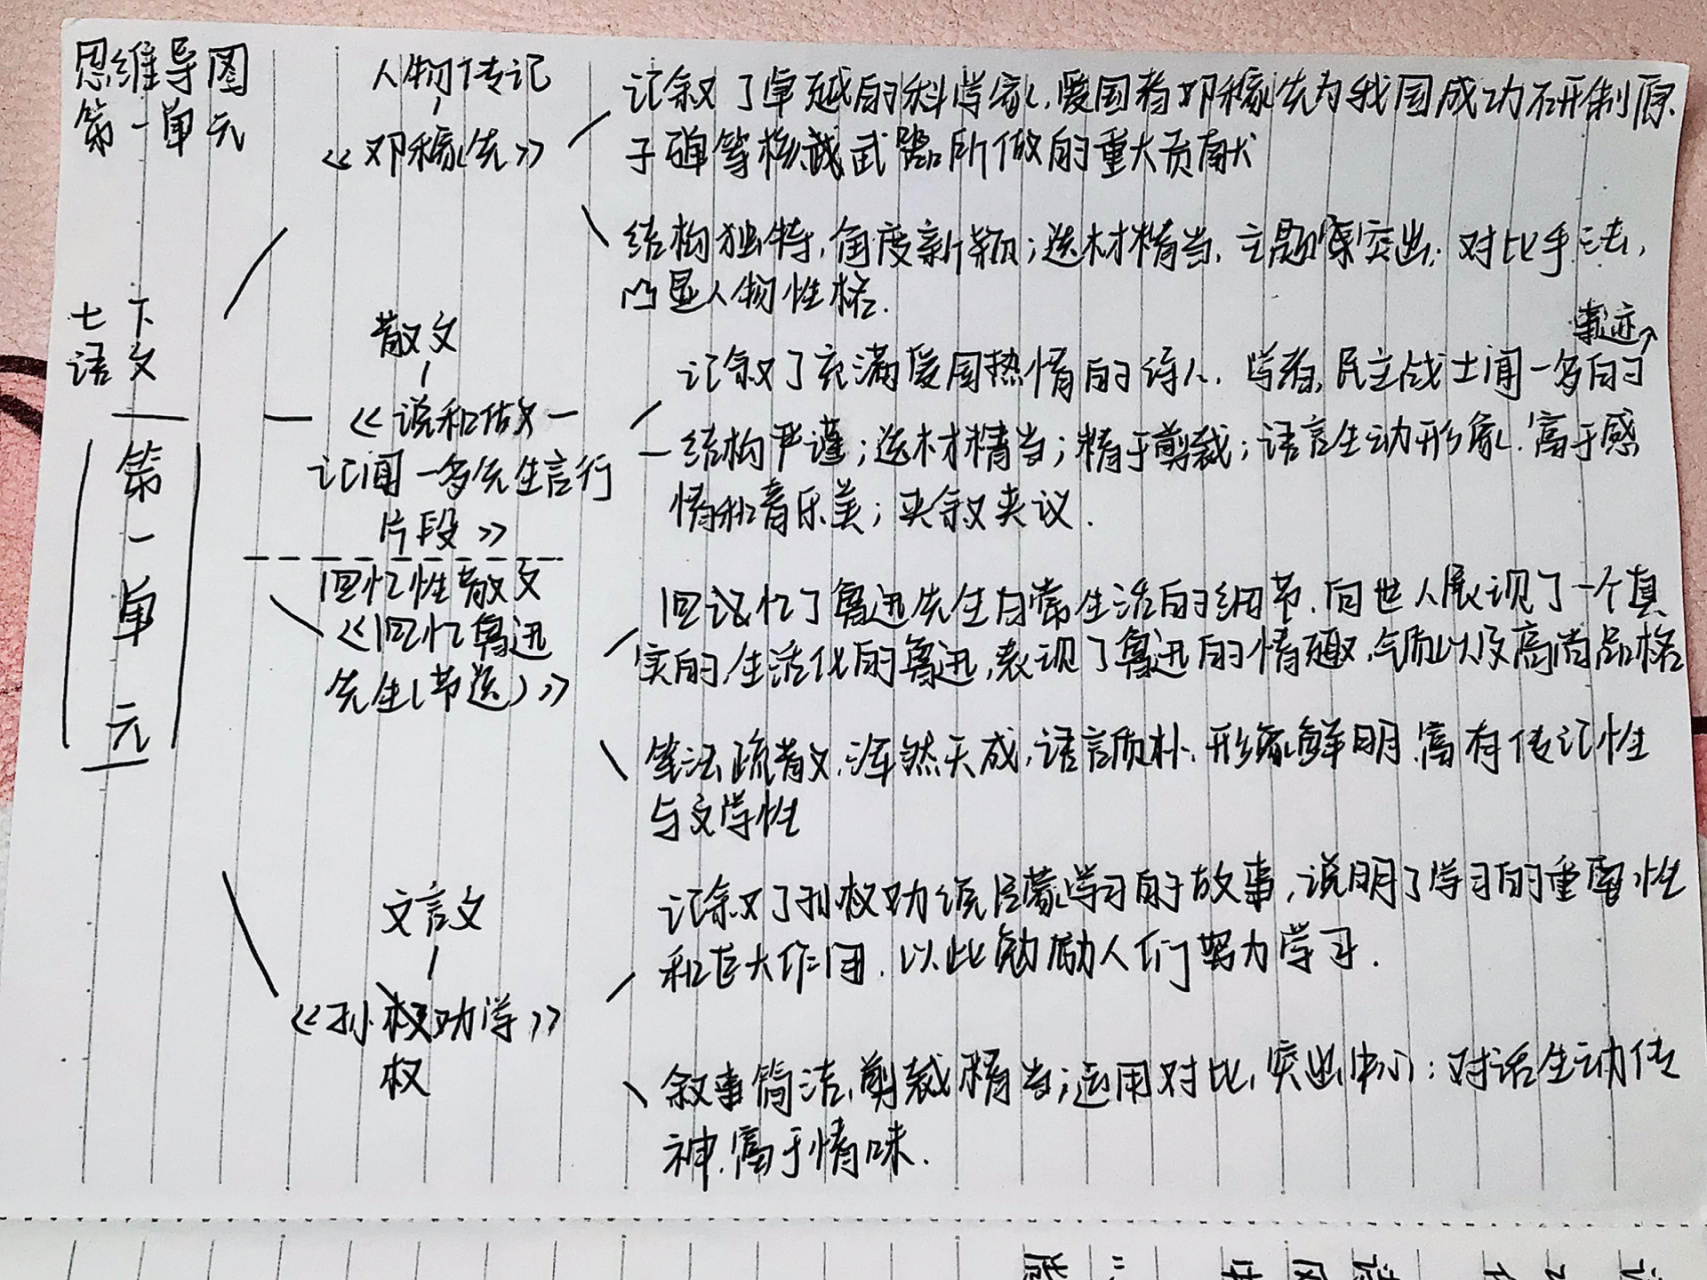 思维导图
第一单元
七下
语文
第一单元
人物传记
《邓稼先》
记叙了卓越的科学家、爱国者邓稼先为我国成功研制原
子弹等核武器所做的重大贡献
结构独特,角度新颖;选材精当,主题突出;对比手法,
凸显人物性格.
散文
《说和做一
记闻一多先生言行
片段》
事迹
记叙了充满爱国热情的诗人、学者、民主战士闻一多的
结构严谨;选材精当;精于剪裁;语言生动形象、富于感
情和音乐美;夹叙夹议.
回忆性散文
《回忆鲁迅
先生(节选)》
回忆了鲁迅先生日常生活的细节,向世人展现了一个真
实的,生活化的鲁迅,表现了鲁迅的情趣,气质以及高尚品格
笔法疏散,浑然天成,语言质朴、形象鲜明,富有传记性
与文学性
文言文
《孙权劝学》
权
记叙了孙权劝说吕蒙学习的故事,说明了学习的重要性
和巨大作用,以此勉励人们努力学习.
叙事简洁,剪裁精当;运用对比,突出中心;对话生动传
神,富于情味.